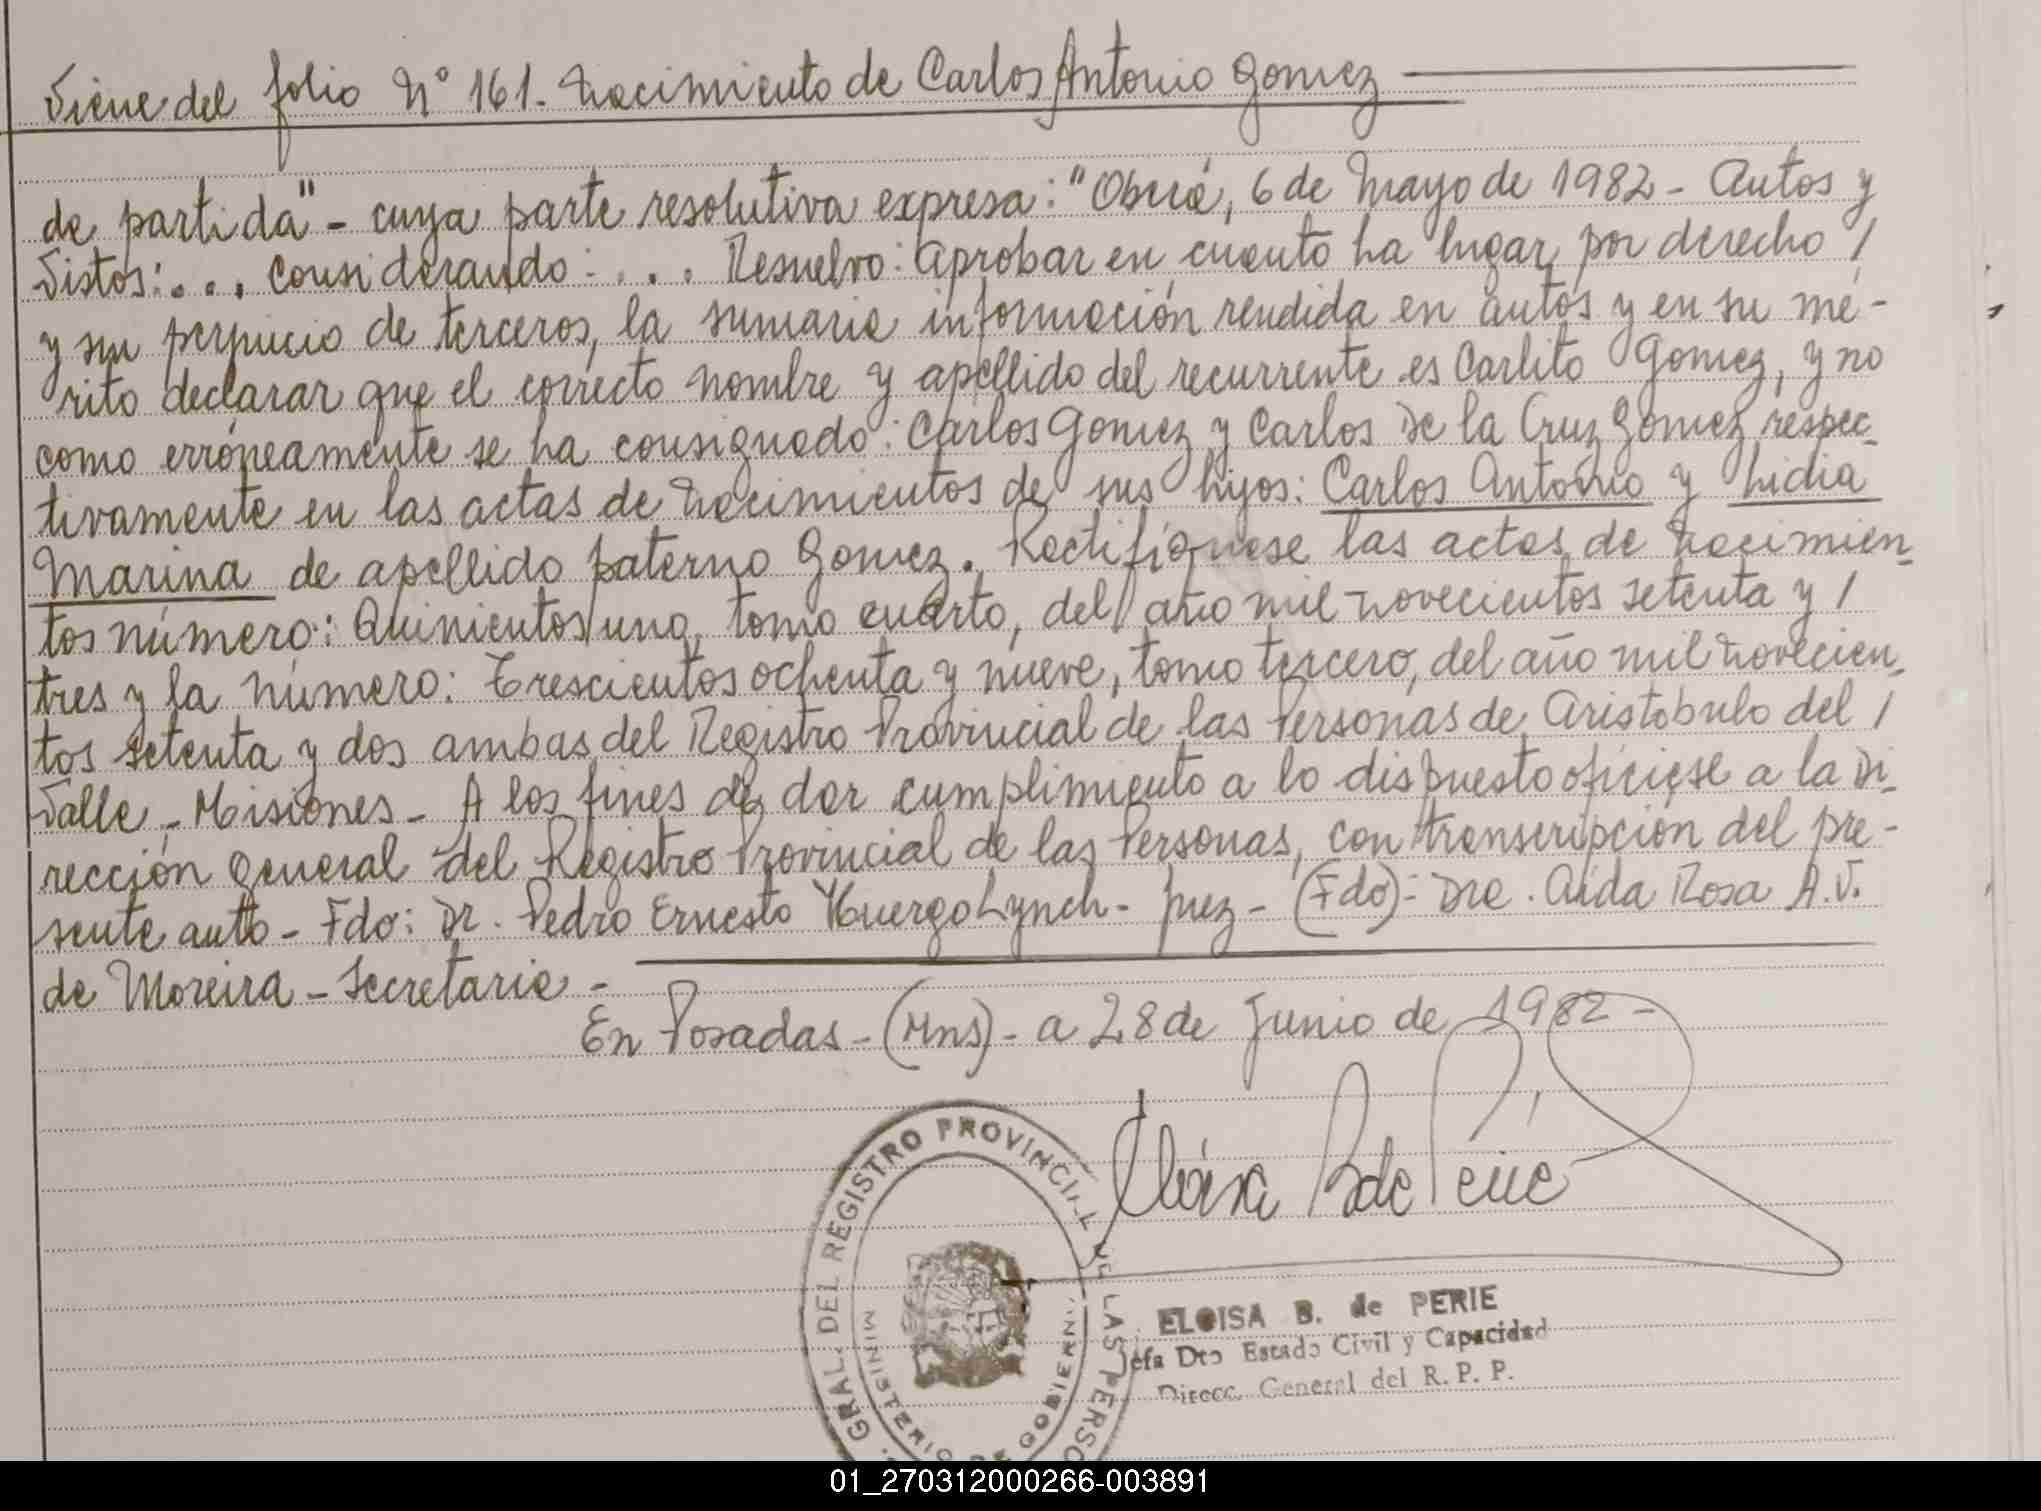 Viene del folio N° 161. Nacimiento de Carlos Antonio Gomez
de partida" - cuya parte resolutiva expresa: "Oberá, 6 de Mayo de 1982 - Autos y
Vistos: . . . Considerando: . . . Resuelvo: Aprobar en cuanto ha lugar por derecho /
y sin perjuicio de terceros, la sumaria información rendida en autos y en su mé-
rito declarar que el correcto nombre y apellido del recurrente es Carlito Gomez, y no
como erróneamente se ha consignado: Carlos Gomez y Carlos De la Cruz Gomez respec-
tivamente en las actas de Nacimientos de sus hijos: Carlos Antonio y Lidia
Marina de apellido paterno Gomez. Rectifíquese las actas de Nacimien-
tos número: Quinientos uno, tomo cuarto, del año mil novecientos setenta y /
tres y la número: Trescientos ochenta y nueve, tomo tercero, del año mil novecien-
tos setenta y dos ambas del Registro Provincial de las Personas de Aristóbulo del /
Valle - Misiones - A los fines de dar cumplimiento a lo dispuesto ofíciese a la Di-
rección General del Registro Provincial de las Personas, con transcripción del pre-
sente auto - Fdo: Dr. Pedro Ernesto Huergo Lynch - Juez - (Fdo): Dra. Aida Rosa A.V.
de Moreira - Secretaria -
En Posadas - (Mns) - a 28 de Junio de 1982 -
Eloisa B de Perie
GRAL. DEL REGISTRO PROVINCIAL DE LAS PERSO
MINISTERIO DE GOBIERNO
ELOISA B. de PERIE
Jefa Dto Estado Civil y Capacidad
Direcc. General del R. P. P.
01_270312000266-003891